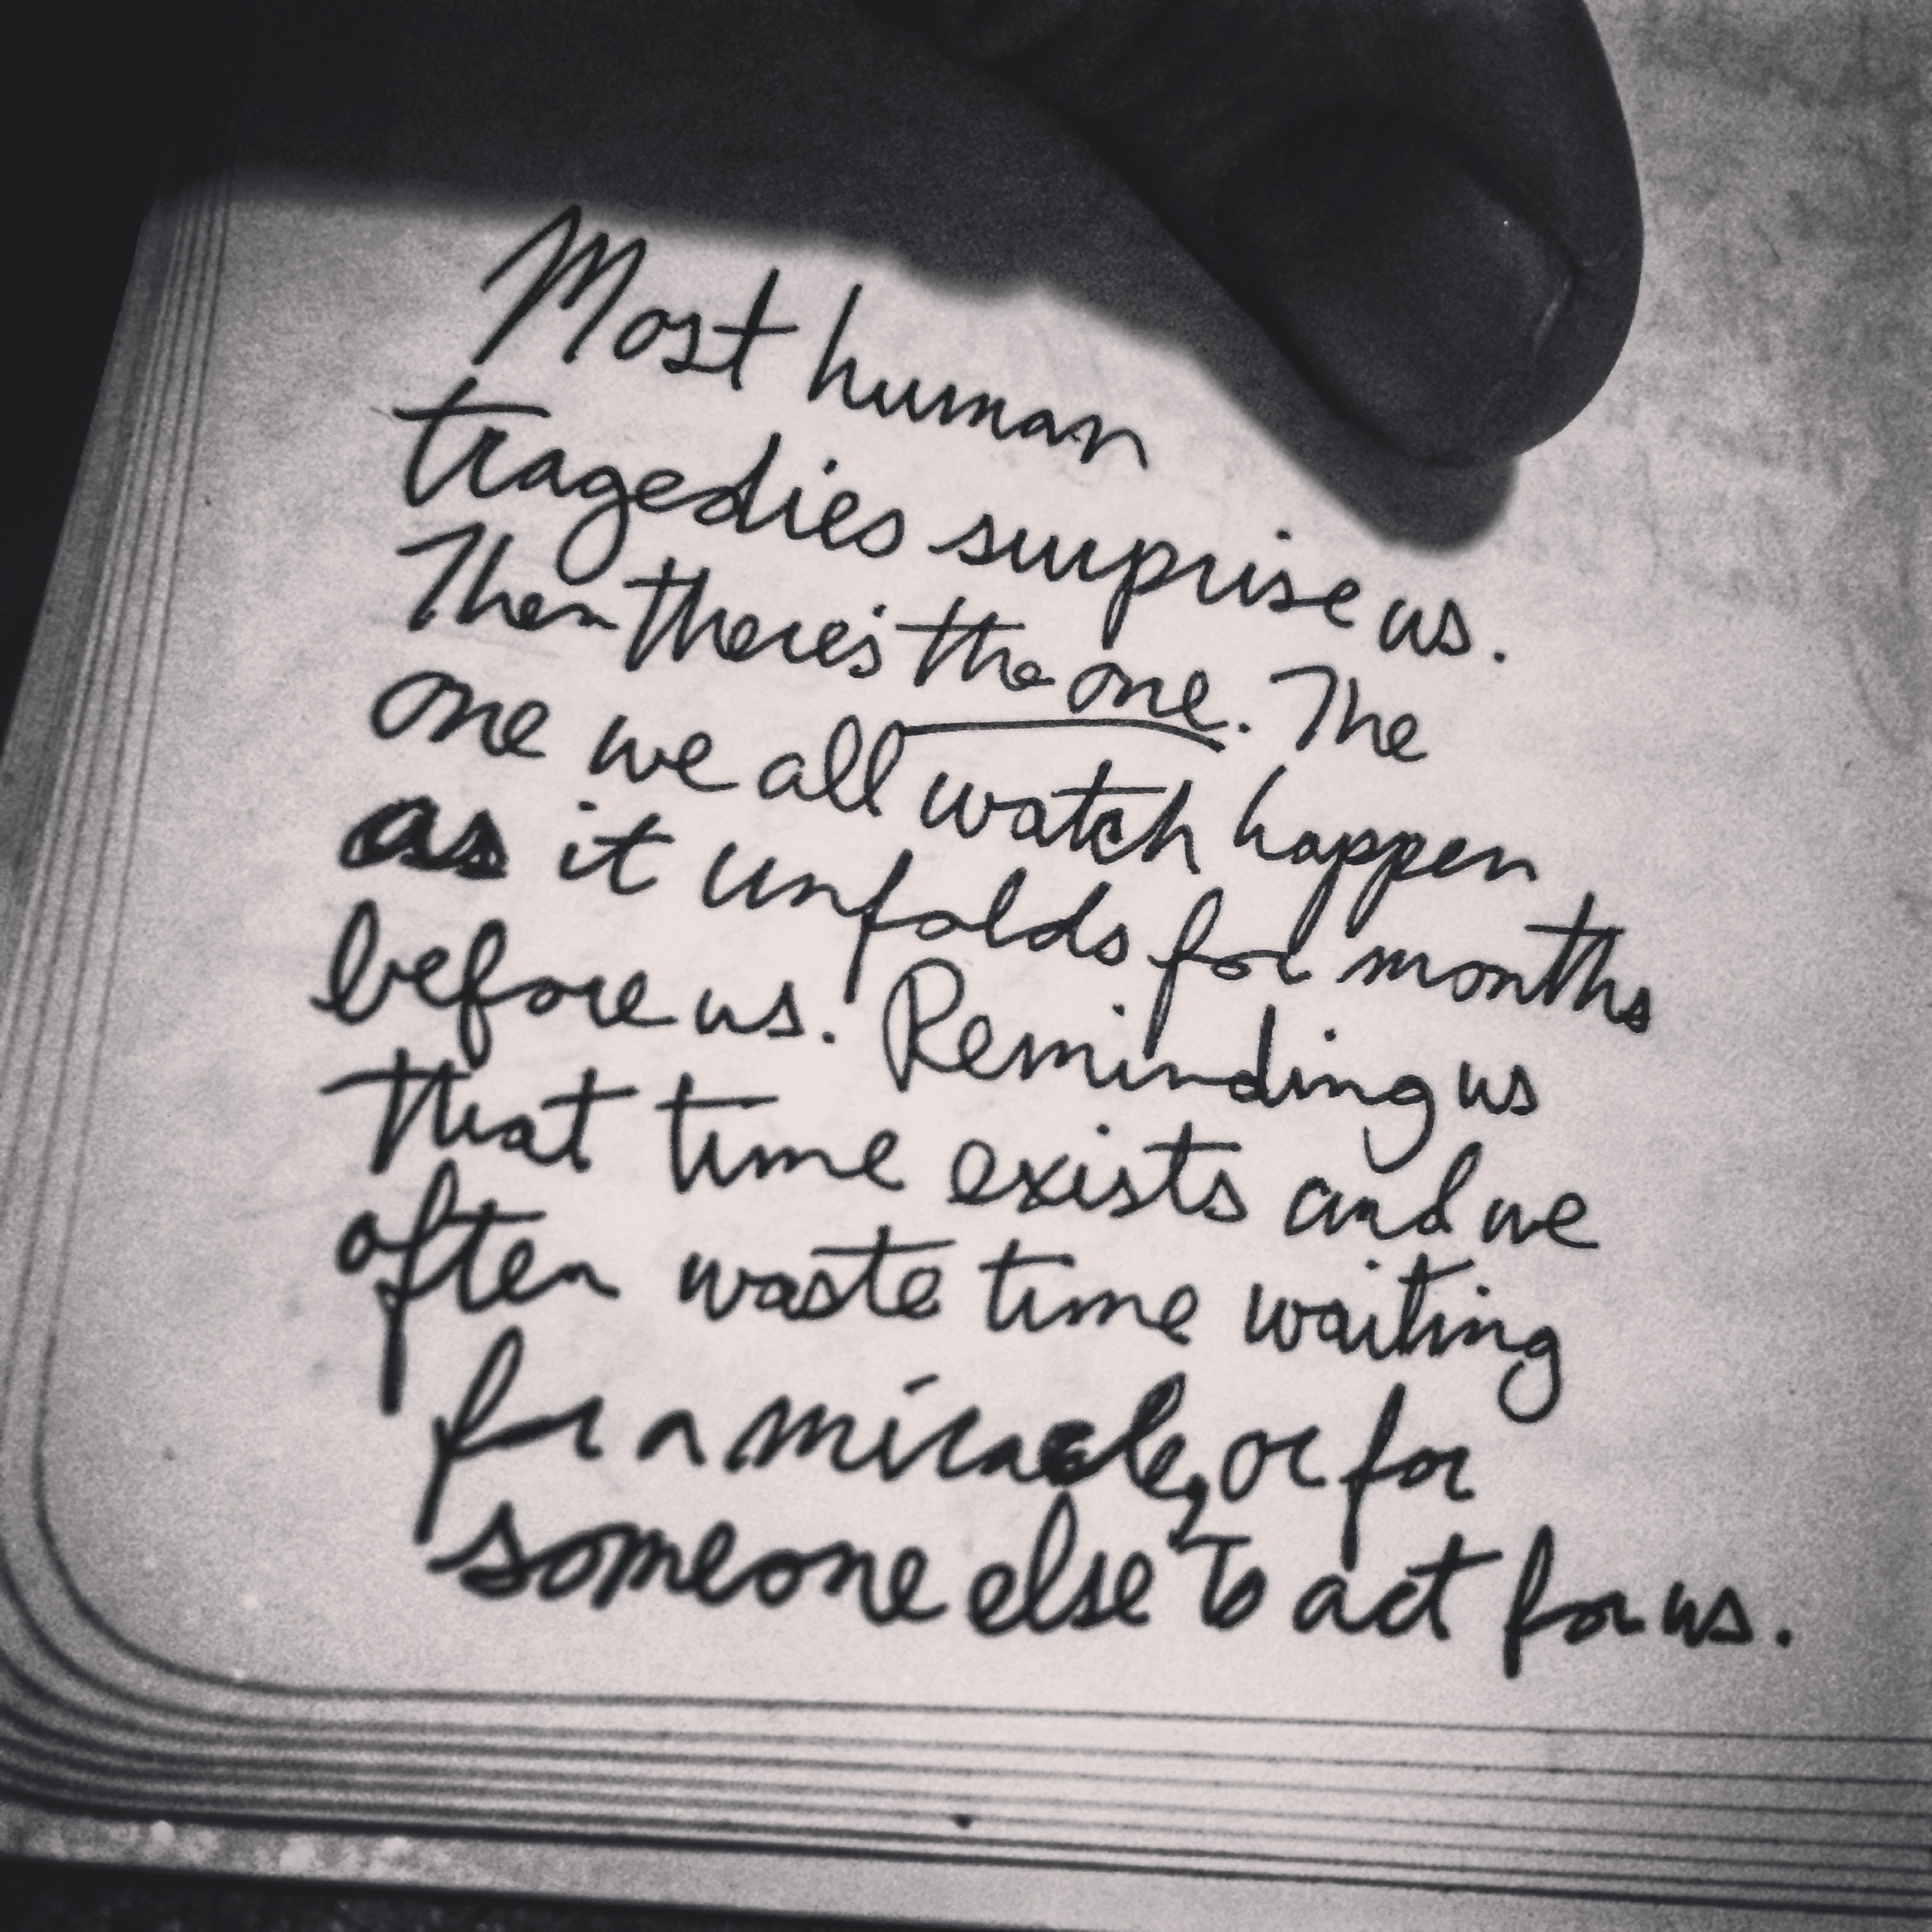 Most human
tragedies surprise us.
Then there's the one. The
one we all watch happen
as it unfolds for months
before us. Reminding us
that time exists and we
often waste time waiting
for a miracle, or for
someone else to act for us.